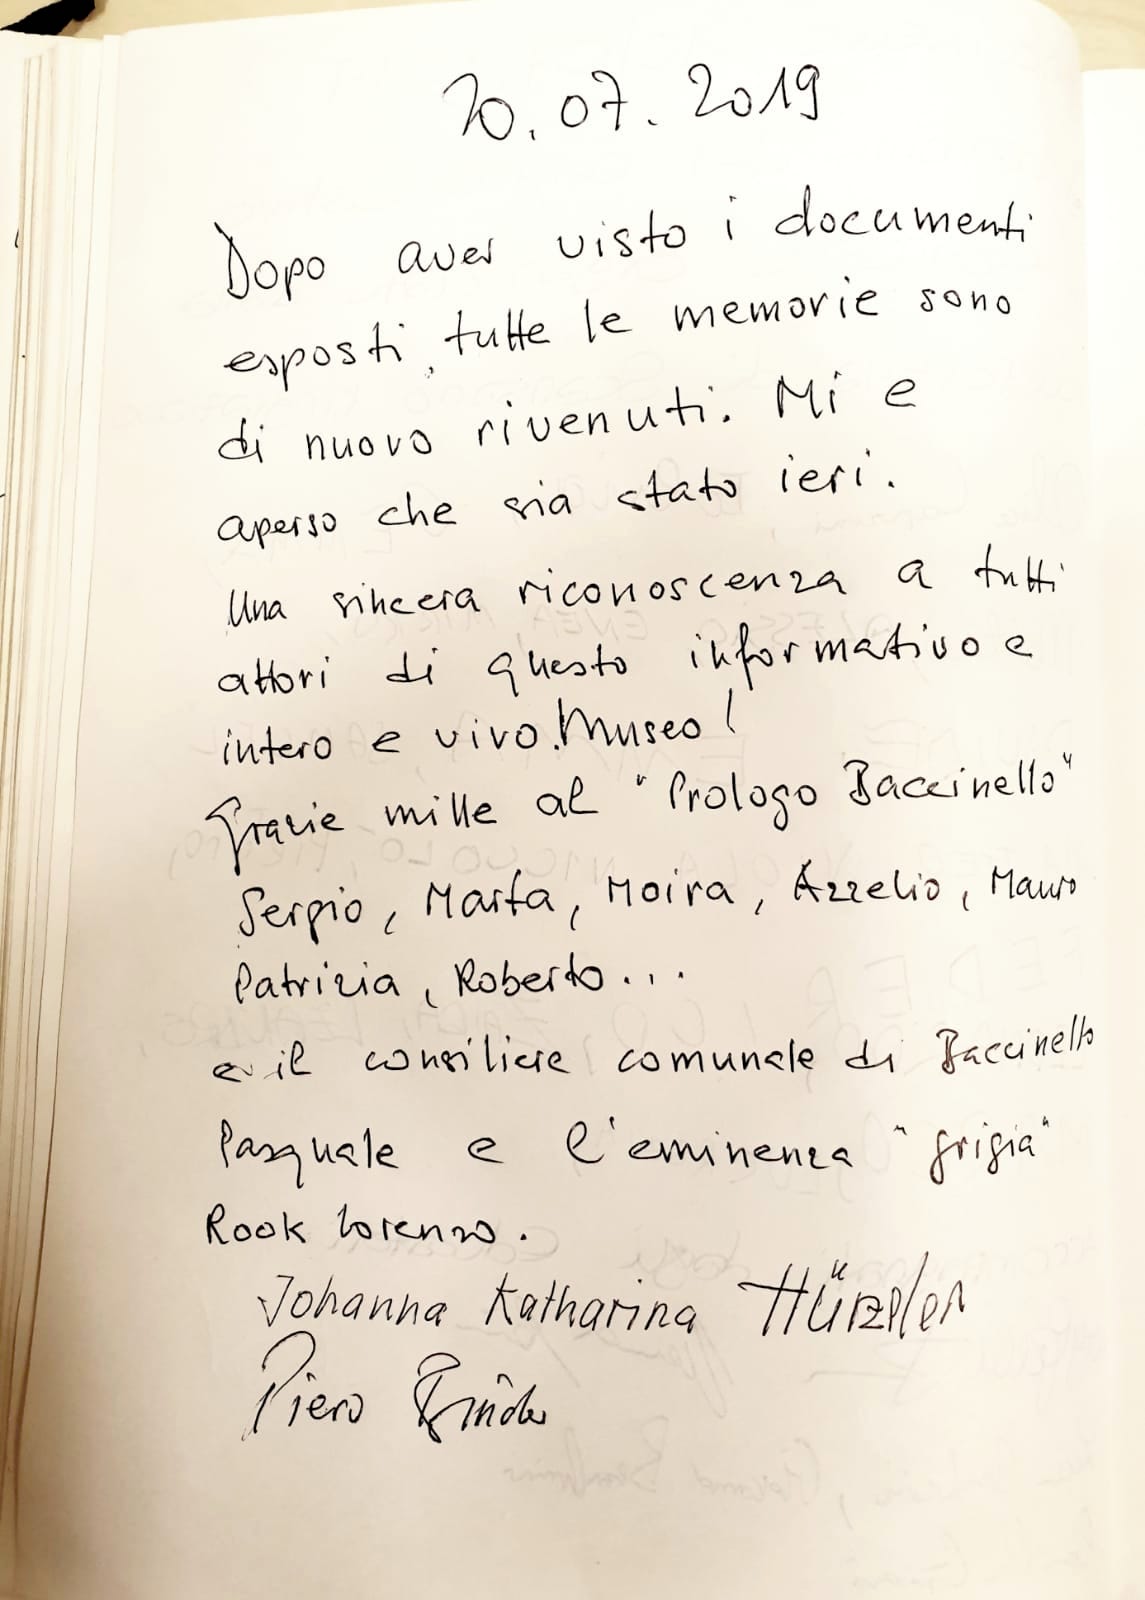 20.07.2019
Dopo aver visto i documenti
esposti, tutte le memorie sono
di nuovo rivenuti. Mi e
aperso che sia stato ieri.
Una sincera riconoscenza a tutti
attori di questo informativo e
intero e vivo. Museo!
Grazie mille al "Prologo Baccinello"
Sergio, Marta, Moira, Azzelio, Mauro
Patrizia, Roberto...
e il consiliere comunale di Baccinello
Pasquale e l'eminenza "grigia"
Rook Lorenzo.
Johanna Katharina Hürzeler
Piero